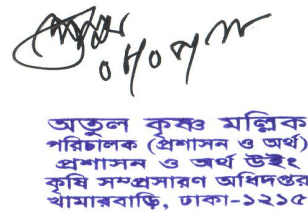 অতুল কৃষ্ণ মল্লিক
পরিচালক (প্রশাসন ও অর্থ)
প্রশাসন ও অর্থ উইং
কৃষি সম্প্রসারণ অধিদপ্তর
খামারবাড়ি, ঢাকা-১২১৫